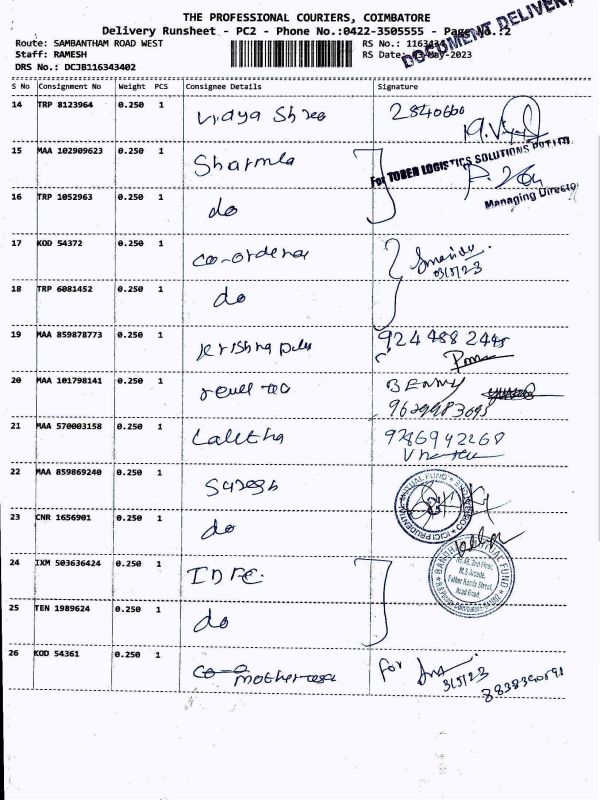 THE PROFESSIONAL COURIERS, COIMBATORE
Delivery Runsheet - PC2 - Phone No.:0422-3505555 - Page No.:2
DOCUMENT DELIVERY
Route: SAMBANTHAM ROAD WEST
RS No.:
Staff: RAMESH
RS Date: May-2023
DRS No.: DCJB116343402
S No Consignment No Weight PCS Consignee Details Signature
14 TRP 8123964 0.250 1 Vidya Shree 2840660
15 MAA 102909623 0.250 1 Sharmla
For TOBER LOGISTICS SOLUTIONS PVT LTD
Managing Director
16 TRP 1052963 0.250 1 do
17 KOD 54372 0.250 1 co-ordena
3/5/23
18 TRP 6081452 0.250 1 do
19 MAA 859878773 0.250 1 Krishna
20 MAA 101798141 0.250 1 BENNY
21 MAA 570003158 0.250 1 Lalitha 9786942268
22 MAA 859869240 0.250 1 Suresh
ICICI PRUDENTIAL MUTUAL FUND
23 CNR 1656901 0.250 1 do
24 IXM 503636424 0.250 1 IDFC
MUTUAL FUND
2nd Floor,
M.S. Arcade,
Road
25 TEN 1989624 0.250 1 do
26 KOD 54361 0.250 1 for
3/5/23